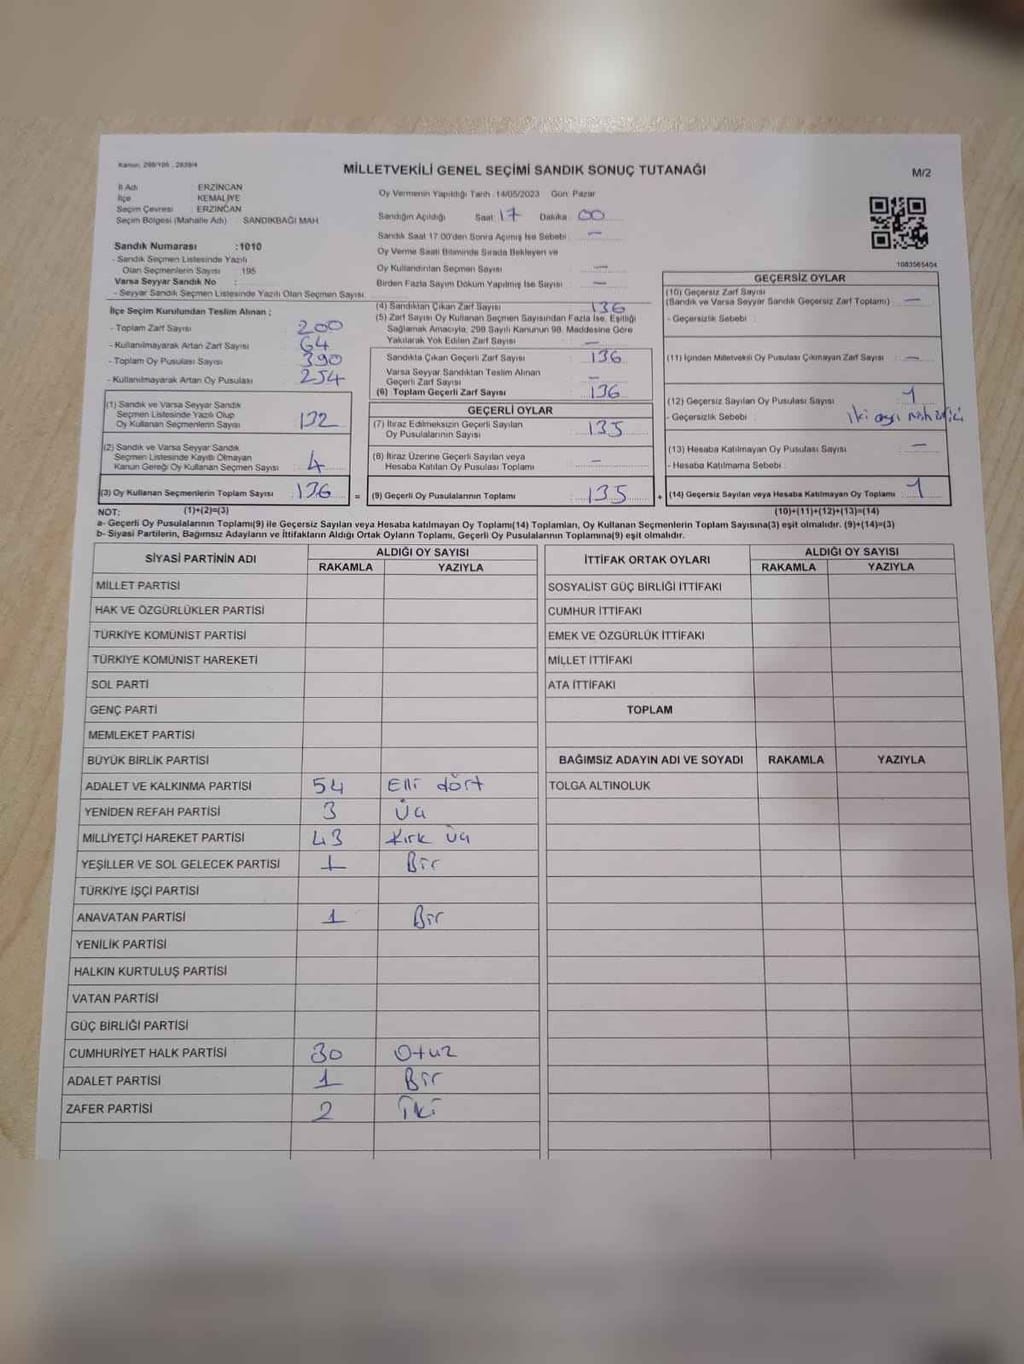 Kanun: 298/105 , 2839/4
MİLLETVEKİLİ GENEL SEÇİMİ SANDIK SONUÇ TUTANAĞI
M/2
İl Adı ERZİNCAN
İlçe KEMALİYE
Seçim Çevresi : ERZİNCAN
Seçim Bölgesi (Mahalle Adı) SANDIKBAĞI MAH
Sandık Numarası :1010
- Sandık Seçmen Listesinde Yazılı
Olan Seçmenlerin Sayısı 195
Varsa Seyyar Sandık No :
- Seyyar Sandık Seçmen Listesinde Yazılı Olan Seçmen Sayısı
İlçe Seçim Kurulundan Teslim Alınan ;
- Toplam Zarf Sayısı 200
- Kullanılmayarak Artan Zarf Sayısı 64
- Toplam Oy Pusulası Sayısı 390
- Kullanılmayarak Artan Oy Pusulası 254
(1) Sandık ve Varsa Seyyar Sandık
Seçmen Listesinde Yazılı Olup
Oy Kullanan Seçmenlerin Sayısı 132
(2) Sandık ve Varsa Seyyar Sandık
Seçmen Listesinde Kayıtlı Olmayan
Kanun Gereği Oy Kullanan Seçmen Sayısı 4
(3) Oy Kullanan Seçmenlerin Toplam Sayısı 136 =
(1)+(2)=(3)
Oy Vermenin Yapıldığı Tarih 14/05/2023 Gün: Pazar
Sandığın Açıldığı Saat 17 Dakika 00
Sandık Saat 17.00'den Sonra Açımış İse Sebebi : —
Oy Verme Saati Bitiminde Sırada Bekleyen ve
Oy Kullandırılan Seçmen Sayısı —
Birden Fazla Sayım Döküm Yapılmış İse Sayısı —
(4) Sandıktan Çıkan Zarf Sayısı 136
(5) Zarf Sayısı Oy Kullanan Seçmen Sayısından Fazla İse, Eşitliği
Sağlamak Amacıyla, 298 Sayılı Kanunun 98. Maddesine Göre
Yakılarak Yok Edilen Zarf Sayısı —
Sandıkta Çıkan Geçerli Zarf Sayısı 136
Varsa Seyyar Sandıktan Teslim Alınan
Geçerli Zarf Sayısı —
(6) Toplam Geçerli Zarf Sayısı 136
GEÇERLİ OYLAR
(7) İtiraz Edilmeksizin Geçerli Sayılan
Oy Pusulalarının Sayısı 135
(8) İtiraz Üzerine Geçerli Sayılan veya
Hesaba Katılan Oy Pusulası Toplamı —
(9) Geçerli Oy Pusulalarının Toplamı 135 +
1083565404
GEÇERSİZ OYLAR
(10) Geçersiz Zarf Sayısı
(Sandık ve Varsa Seyyar Sandık Geçersiz Zarf Toplamı) —
- Geçersizlik Sebebi :
(11) İçinden Milletvekili Oy Pusulası Çıkmayan Zarf Sayısı —
(12) Geçersiz Sayılan Oy Pusulası Sayısı 1
- Geçersizlik Sebebi : iki ayrı
(13) Hesaba Katılmayan Oy Pusulası Sayısı —
- Hesaba Katılmama Sebebi :
(14) Geçersiz Sayılan veya Hesaba Katılmayan Oy Toplamı 1
(10)+(11)+(12)+(13)=(14)
NOT:
a- Geçerli Oy Pusulalarının Toplamı(9) ile Geçersiz Sayılan veya Hesaba katılmayan Oy Toplamı(14) Toplamları, Oy Kullanan Seçmenlerin Toplam Sayısına(3) eşit olmalıdır. (9)+(14)=(3)
b- Siyasi Partilerin, Bağımsız Adayların ve İttifakların Aldığı Ortak Oyların Toplamı, Geçerli Oy Pusulalarının Toplamına(9) eşit olmalıdır.
SİYASİ PARTİNİN ADI ALDIĞI OY SAYISI
RAKAMLA YAZIYLA
MİLLET PARTİSİ
HAK VE ÖZGÜRLÜKLER PARTİSİ
TÜRKİYE KOMÜNİST PARTİSİ
TÜRKİYE KOMÜNİST HAREKETİ
SOL PARTİ
GENÇ PARTİ
MEMLEKET PARTİSİ
BÜYÜK BİRLİK PARTİSİ
ADALET VE KALKINMA PARTİSİ 54 Elli dört
YENİDEN REFAH PARTİSİ 3 Üç
MİLLİYETÇİ HAREKET PARTİSİ 43 Kırk üç
YEŞİLLER VE SOL GELECEK PARTİSİ 1 Bir
TÜRKİYE İŞÇİ PARTİSİ
ANAVATAN PARTİSİ 1 Bir
YENİLİK PARTİSİ
HALKIN KURTULUŞ PARTİSİ
VATAN PARTİSİ
GÜÇ BİRLİĞİ PARTİSİ
CUMHURİYET HALK PARTİSİ 30 Otuz
ADALET PARTİSİ 1 Bir
ZAFER PARTİSİ 2 İki
İTTİFAK ORTAK OYLARI ALDIĞI OY SAYISI
RAKAMLA YAZIYLA
SOSYALİST GÜÇ BİRLİĞİ İTTİFAKI
CUMHUR İTTİFAKI
EMEK VE ÖZGÜRLÜK İTTİFAKI
MİLLET İTTİFAKI
ATA İTTİFAKI
TOPLAM
BAĞIMSIZ ADAYIN ADI VE SOYADI RAKAMLA YAZIYLA
TOLGA ALTINOLUK